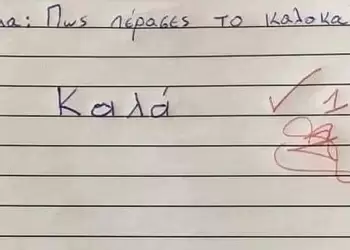 μα: Πως πέρασες το καλοκα
Καλά
✓ 1